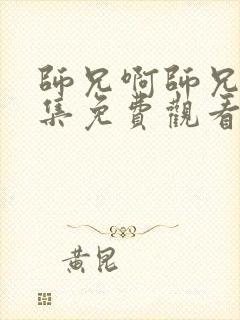 師兄啊師兄
集免費觀看
黃昆